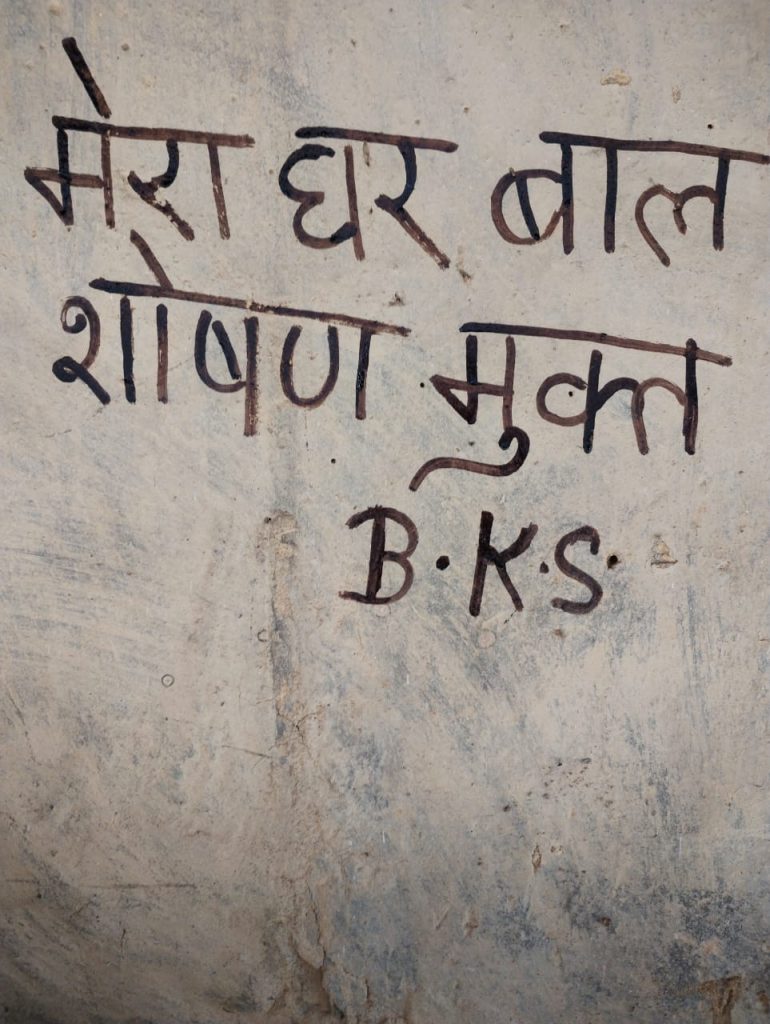 मेरा घर बाल
शोषण मुक्त
B.K.S.